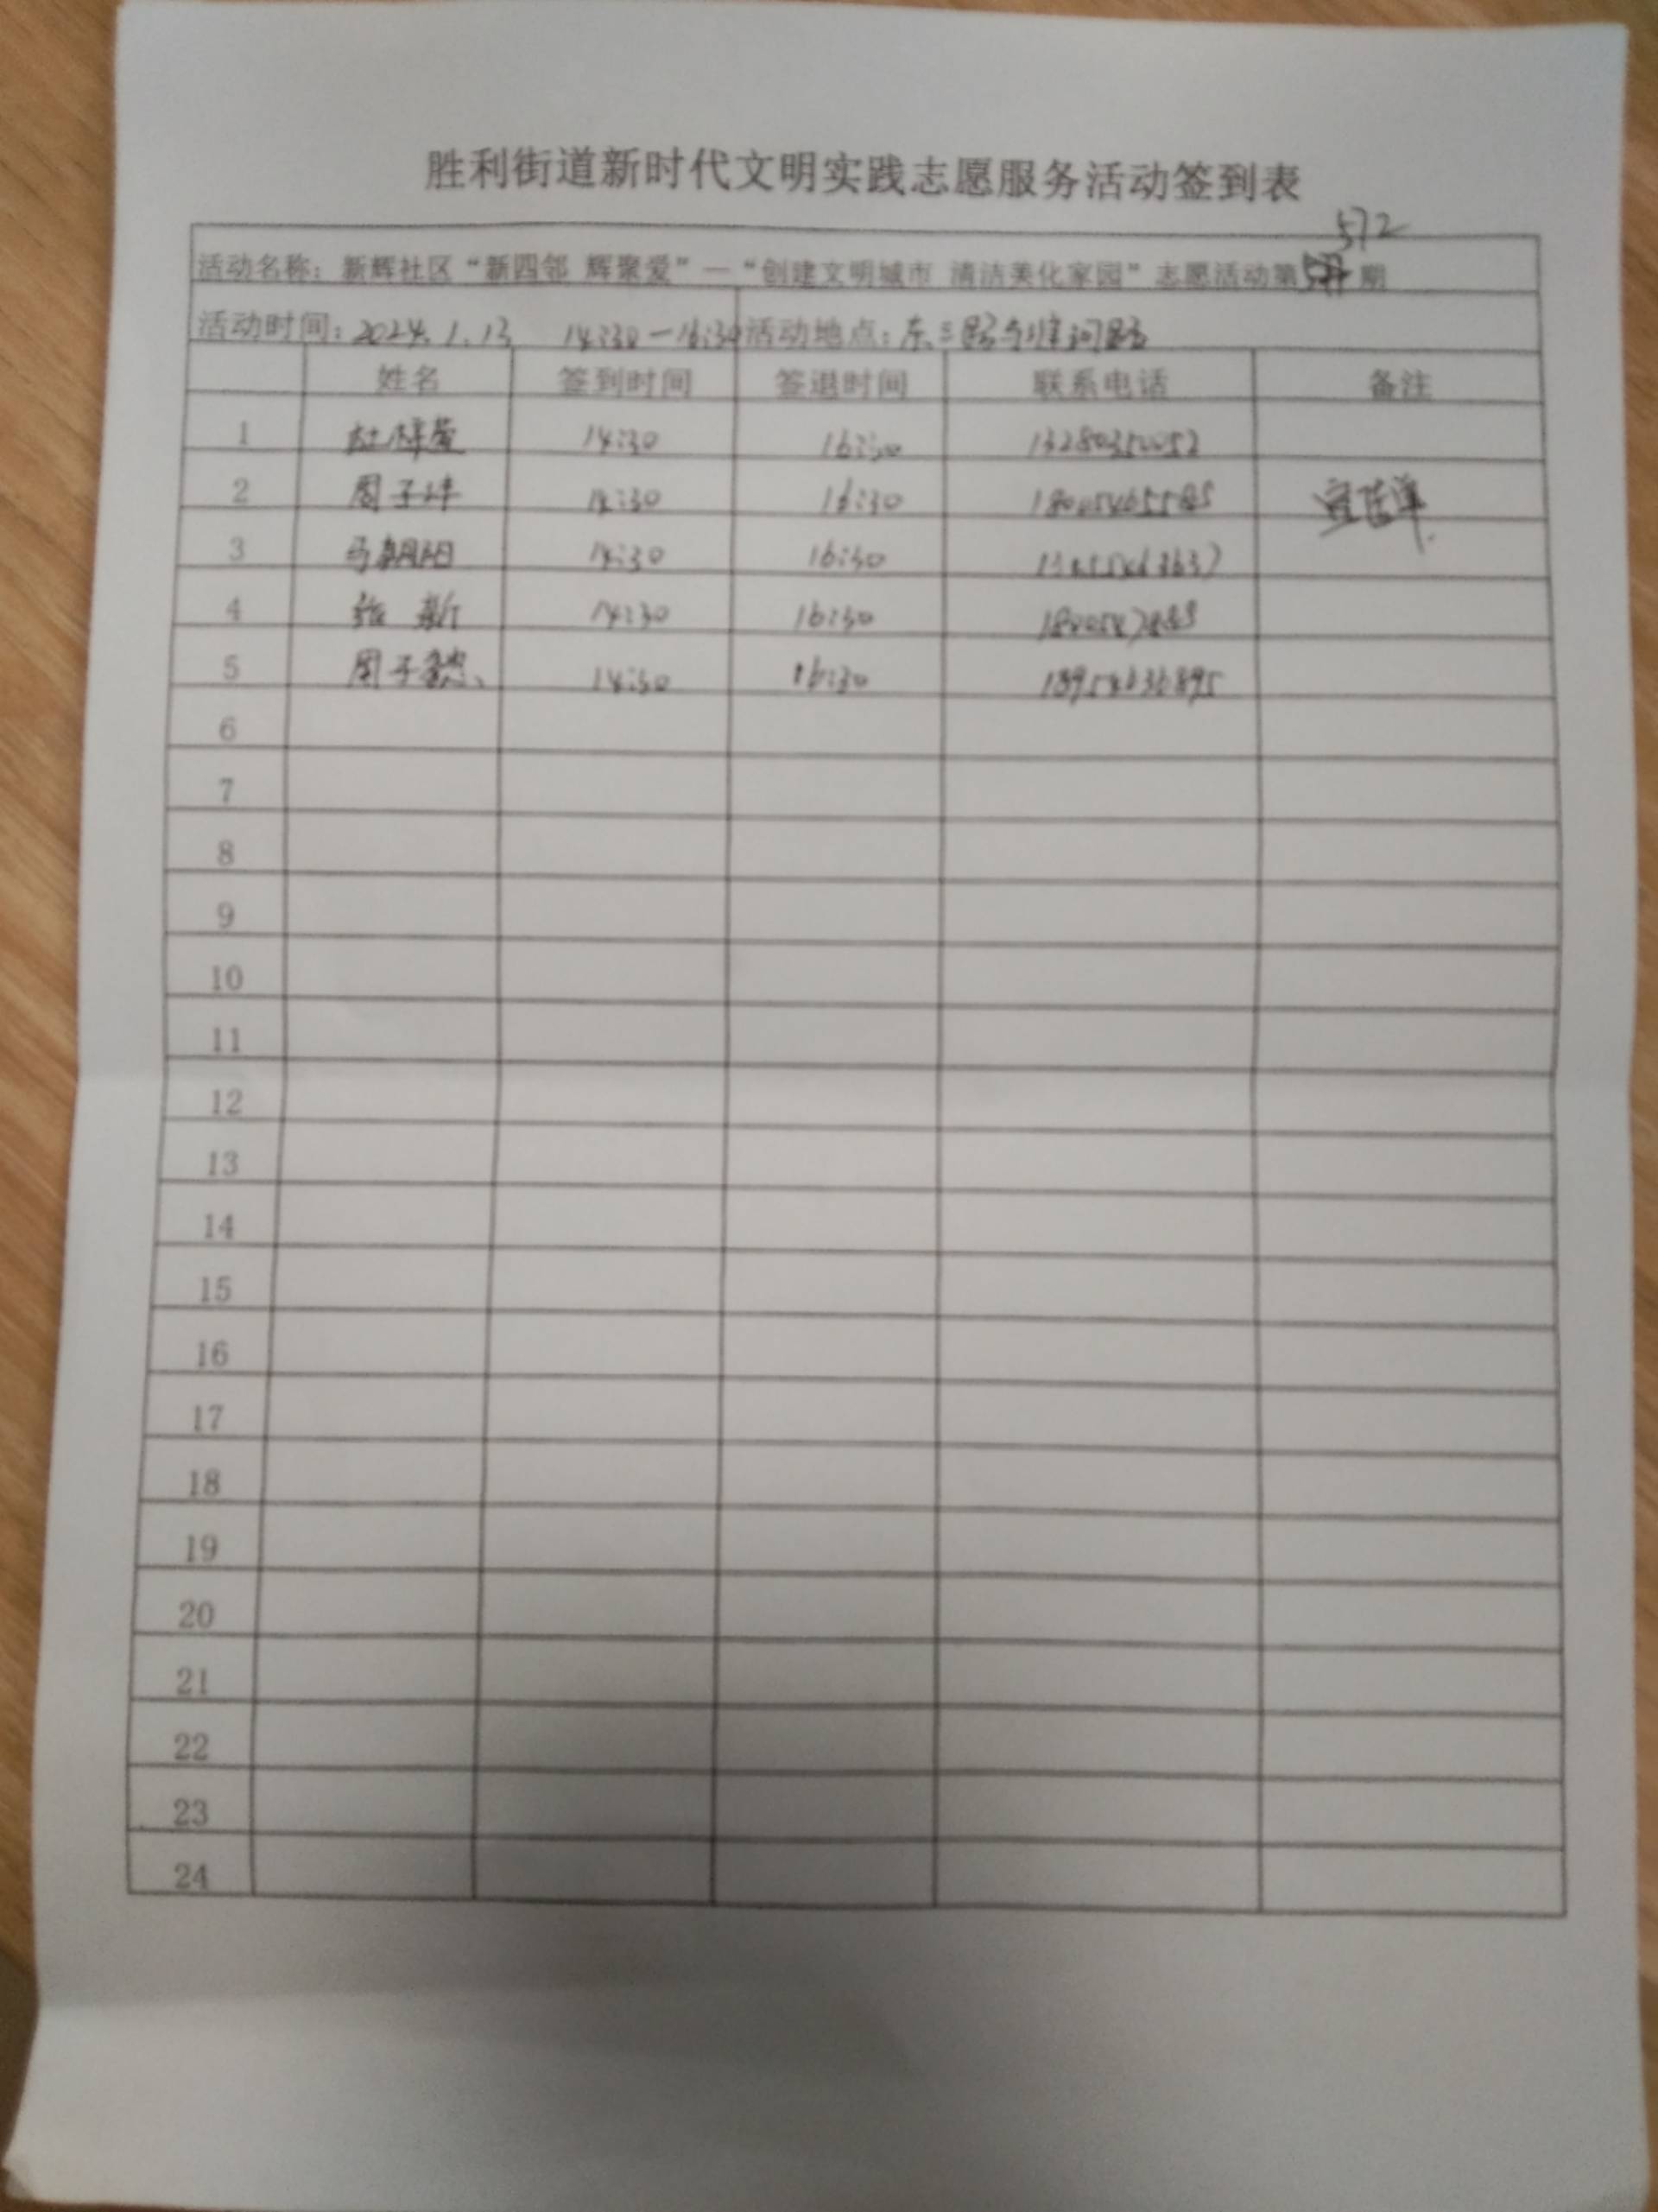 胜利街道新时代文明实践志愿服务活动签到表
572
活动名称：新辉社区“新四邻 辉聚爱”—“创建文明城市 清洁美化家园”志愿活动第 期
活动时间：2024.1.13 14:30—16:30 活动地点：东三路与淮河路
姓名 签到时间 签退时间 联系电话 备注
1 杜梓萱 14:30 16:30 13280350052
2 周子 14:30 16:30
3 马朝阳 14:30 16:30
4 新 14:30 16:30
5 周子懿 14:30 16:30 18954636895
6
7
8
9
10
11
12
13
14
15
16
17
18
19
20
21
22
23
24